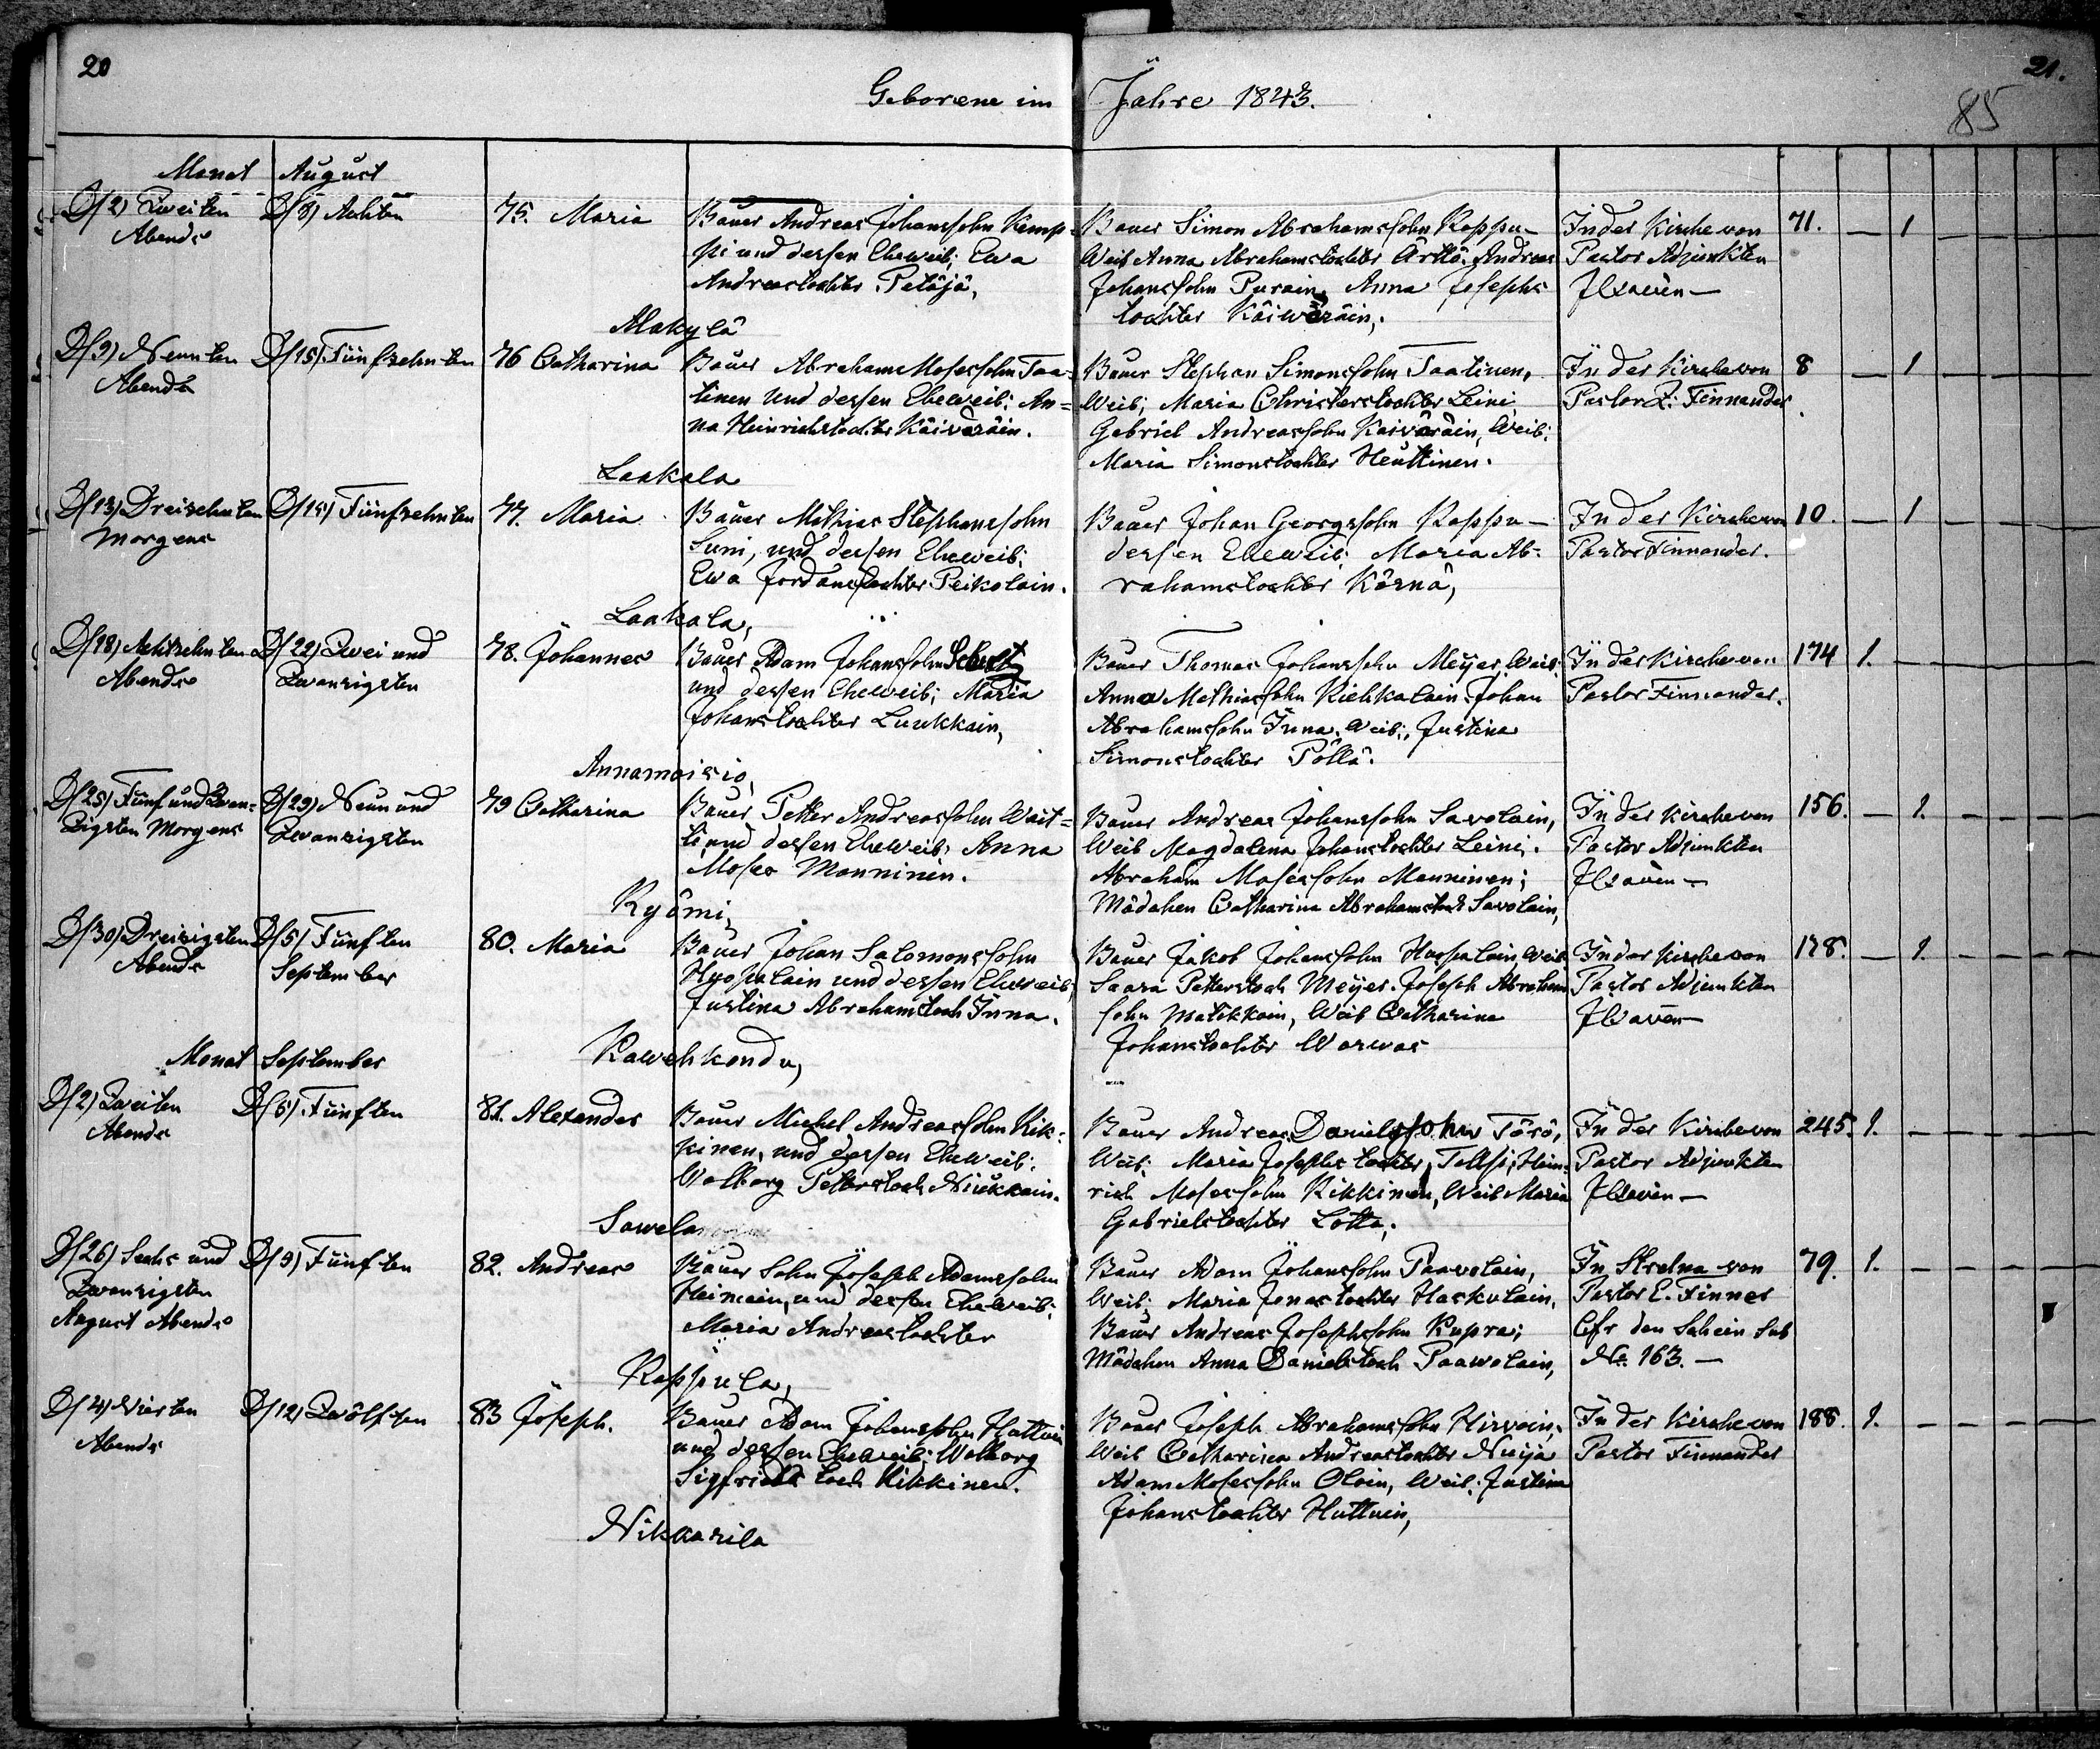 20
21.
85
Geborene im Jahre 1843.
Monat August
D/2) Zweiten
Abends
D/8) Achten
75. Maria
Bauer Andreas Johanssohn Kemp=
pi und dessen Eheweib; Ewa
Andreastochter Petäjä,
Alakylä
Bauer Simon Abrahamssohn Kappu-
Weib Anna Abrahamstochter Ärttö. Andreas
Johanssohn Purain, Anna Josephs
tochter Käiweräin,
In der Kirche von
Pastor Adjunkten
71. — 1
D/9) Neunten
Abends
D/15) Fünfzehnten
76 Catharina
Bauer Abraham Mosessohn Taa-
tinen und dessen Eheweib: An=
na Heinrichstochter Käiveräin.
Laakala
Bauer Stephan Simonssohn Taatinen,
Weib; Maria Christerstochter Leini
Gabriel Andreassohn Kaiväräin, Weib:
Maria Simonstochter Heuttinen.
In der Kirche von
Pastor Z: Finnander
8 — 1
D/13) Dreizehnten
Morgens
D/15) Fünfzehnten
77. Maria
Bauer Mathias Stephanssohn
Suni, und dessen Eheweib:
Ewa Jordanstochter Peikolain.
Laakala,
Bauer Johan Georgssohn Kappu-
dessen Eheweib; Maria Ab-
rahamstochter Kärnä,
In der Kirche von
Pastor Finnander.
10. — 1
D/18) Achtzehnten
Abends
D/22) Zwei und
Zwanzigsten
78. Johannes
Bauer Adam Johanssohn
und dessen Eheweib; Maria
Johanstochter Luukkain,
Annamoisio,
Bauer Thomas Johanssohn Meyer Weib:
Anna Mathiassohn Kiehkalain. Johan
Abrahamssohn Inna. Weib:, Justina
Simonstochter Pöllä.
In der Kirche von
Pastor Finnander.
174 1. —
D/25) Fünf und Zwan-
zigsten Morgens
D/29) Neun und
Zwanzigsten
79 Catharina
Bauer Petter Andreassohn Wait=
ti, und dessen Eheweib: Anna
Moses Manninin.
Kyömi,
Bauer Andreas Johanssohn Savolain,
Weib Magdalena Johanstochter Leini.
Abraham Mosessohn Manninen;
Mädchen Catharina Abrahamstoch Savolain,
In der Kirche von
Pastor Adjunkten
156. — 1.
D/30) Dreisigsten
Abends
D/5) Fünften
September
80. Maria
Bauer Johan Salomonssohn
und dessen Eheweib;
Justina Abrahamstoch Inna.
Kawehkondu,
Bauer Jakob Johanssohn Weib
Saara Petterstoch Meyer. Joseph Abraham
sohn Matikkain, Weib Catharina
Johanstochter Warwas
In der Kirche von
Pastor Adjunkten
178. — 1.
Monat September
D/2) Zweiten
Abends
D/5) Fünften
81. Alexander
Bauer Michel Andreassohn Kik-
kinen, und dessen Eheweib:
Walborg Petterstoch Niukkain.
Sawela
Bauer Andreas Danielssohn Törö,
Weib: Maria Josephs tochter, Hein-
rich Mosessohn Kikkinen, Weib Maria
Gabrielstochter Lotta,
In der Kirche von
Pastor Adjunkten
245. 1. —
D/26) Sechs und
Zwanzigsten
August Abends
D/5) Fünften
82. Andreas
Bauer Sohn Joseph Adamssohn
Heimain, und dessen Eheweib:
Maria Andreastochter
Kappula,
Bauer Adam Johanssohn Paavolain,
Weib; Maria Jonastochter Haskulain,
Bauer Andreas Josephssohn Kupra;
Mädchen Anna Danielstoch Paawolain,
In Strelna von
Pastor E. Finner
Cfr den Schein Sub
No. 163. —
79. 1. —
D/4) Vierten
Abends
D/12) Zwölften
83 Joseph.
Bauer Adam Johanssohn Huttuin
und dessen Eheweib; Walborg
Sigfrieds toch Kikkinen.
Nikkarila
Bauer Joseph Abrahamssohn Hirvoin,
Weib Catharina Andreastochter Nuija
Adam Mosessohn Oloin, Weib: Justina
Johanstochter Huttuin,
In der Kirche von
Pastor Finnander
188. 1. —